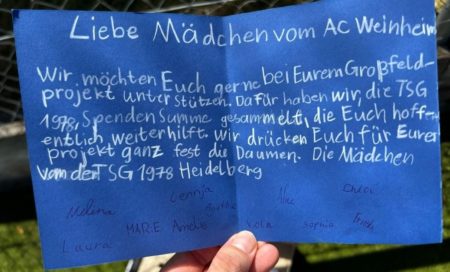 Liebe Mädchen vom AC Weinheim
Wir möchten Euch gerne bei Eurem Großfeld-
projekt unterstützen. Dafür haben wir, die TSG
1978, Spenden Summe gesammelt, die Euch hoff-
entlich weiterhilft. Wir drücken Euch für Euer
projekt ganz fest die Daumen. Die Mädchen
von der TSG 1978 Heidelberg
Melina Lennja
Laura MARIE Amelie Lola Sophia